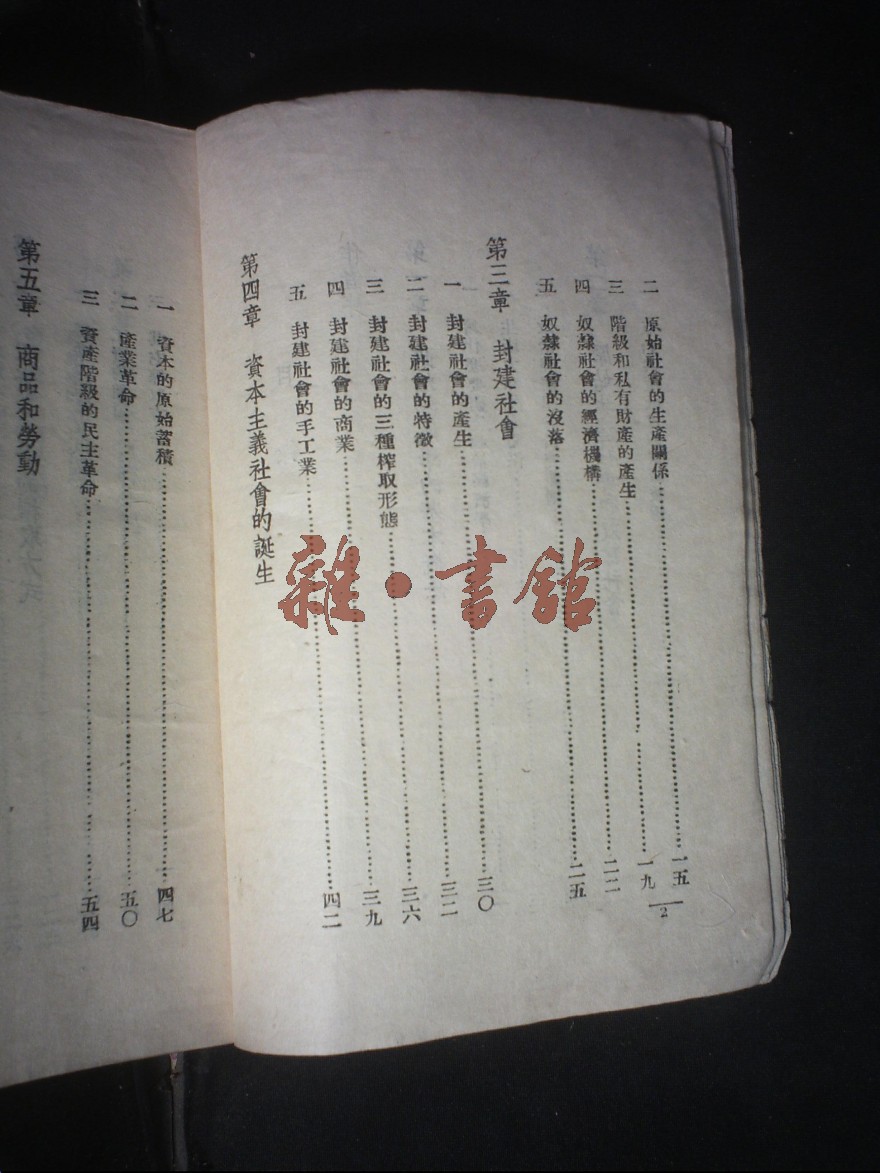 二 原始社會的生產關係……一五
三 階級和私有財產的產生……一九
四 奴隸社會的經濟機構……二二
五 奴隸社會的沒落……二五
第三章 封建社會
一 封建社會的產生……三〇
二 封建社會的特徵……三二
三 封建社會的三種榨取形態……三六
四 封建社會的商業……三九
五 封建社會的手工業……四二
第四章 資本主義社會的誕生
2
一 資本的原始蓄積……四七
二 產業革命……五〇
三 資產階級的民主革命……五四
第五章 商品和勞動
雜·書館